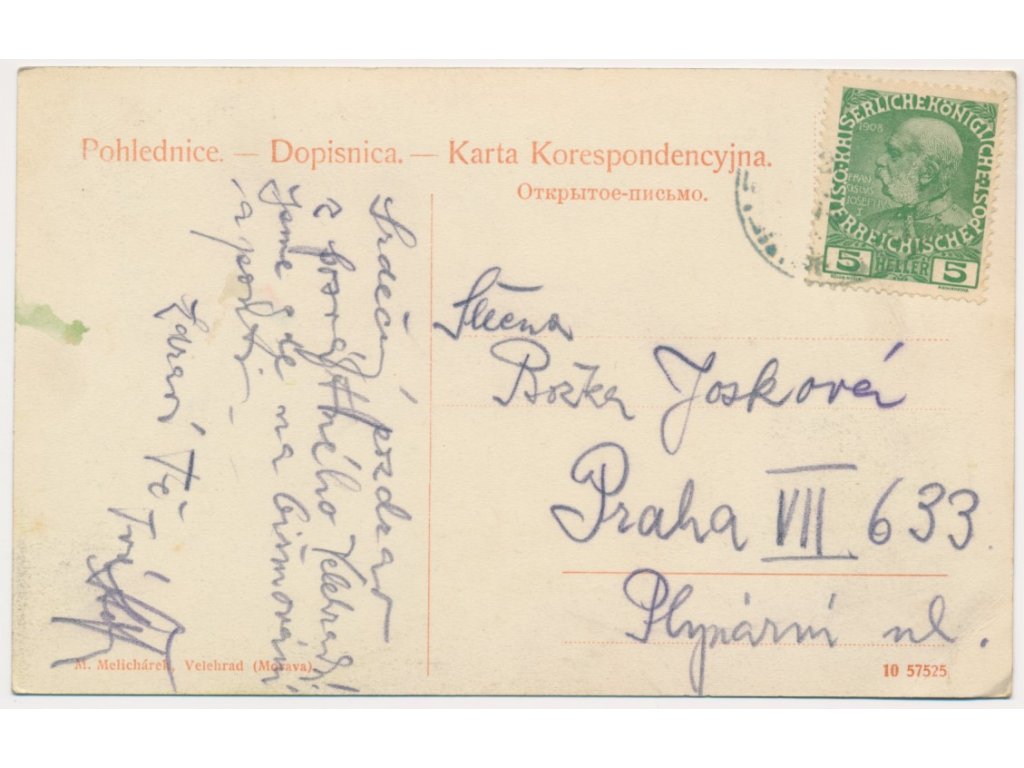 Pohlednice. — Dopisnica. — Karta Korespondencyjna.
Открытое-письмо.
KAISERLICHE KÖNIGLICHE ÖSTERREICHISCHE POST
1908
FRAN
CISCVS
IOSEPHVS
I
5 HELLER 5
Srdečný pozdrav
z posvátného Velehradu!
Jsme zde na biřmování
a pouti —
Zdraví Tě
Tvůj
Slečna
Božka Josková
Praha VII 633
Plynární ul.
M. Melichárek, Velehrad (Morava).
10 57525